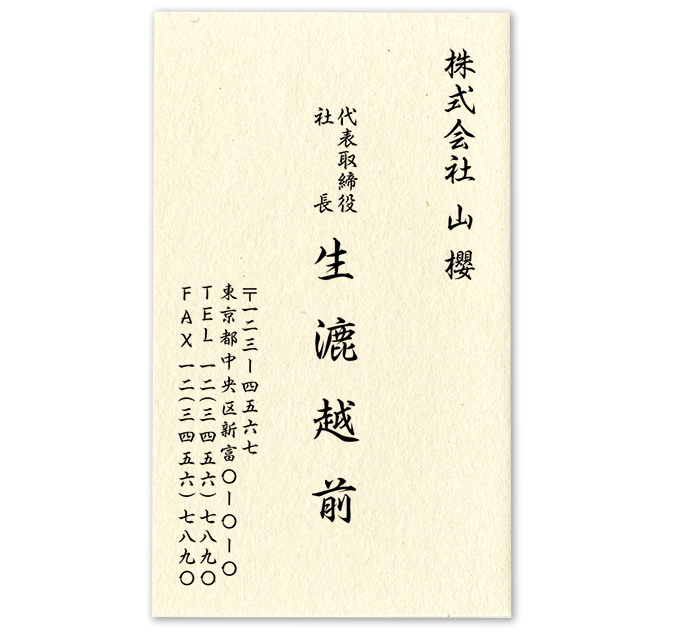 株式会社 山櫻
代表取締役
社長
生漉越前
〒一二三ー四五六七
東京都中央区新富〇ー〇ー〇
TEL 一二(三四五六)七八九〇
FAX 一二(三四五六)七八九〇